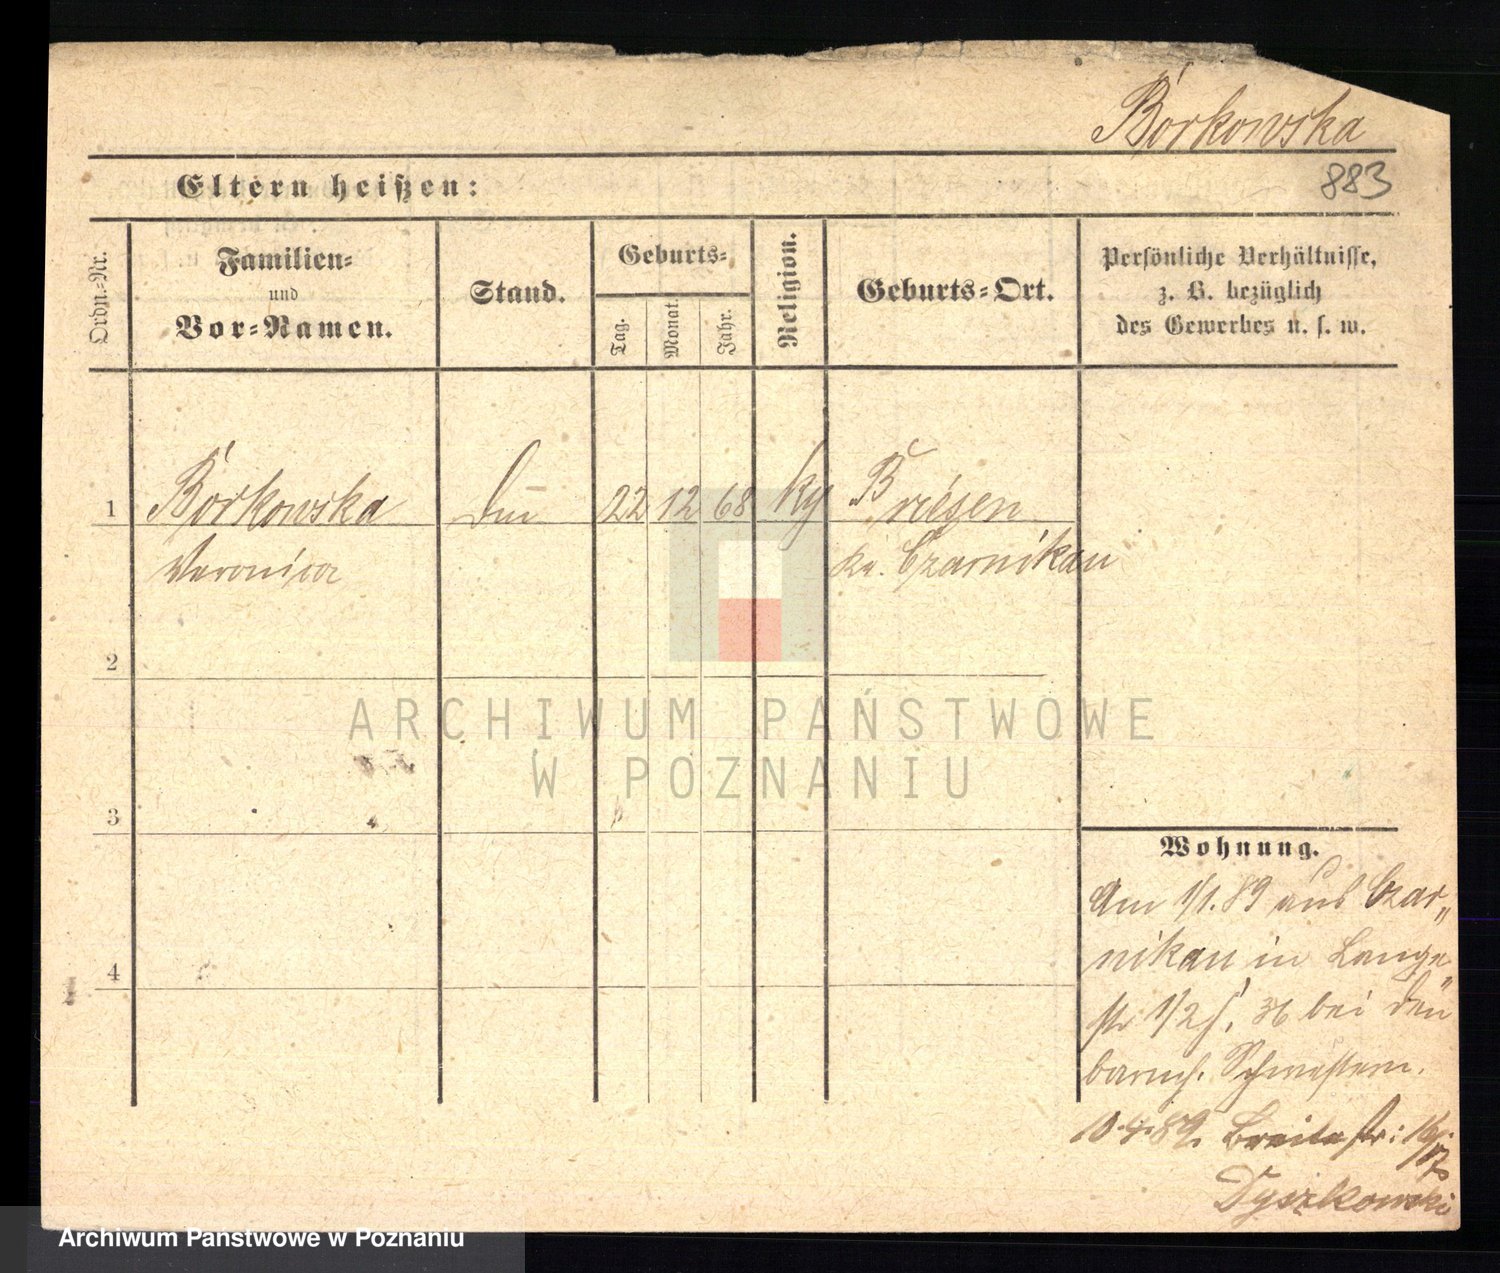 Borkowska
883
Eltern heißen:
Ordn.-Nr.
Familien-
und
Vor-Namen.
Stand.
Geburts-
Tag.
Monat.
Jahr.
Religion.
Geburts-Ort.
Persönliche Verhältnisse,
z. B. bezüglich
des Gewerbes u. s. w.
1 Borkowska 22 12 68 Briesen
Veronica Kr. Czarnikau
2
ARCHIWUM PAŃSTWOWE
W POZNANIU
3
4
Wohnung.
Am 1/1. 89 aus Czar„
nikau in Lange
str 1/2 bei den
barmh. Schwestern.
10.4.89. Breitestr: 
Dyszkowski
Archiwum Państwowe w Poznaniu